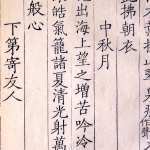 拂朝衣
中秋月
出海上望之增苦吟
皓氣籠諸夏清光射萬
般心
下第寄友人